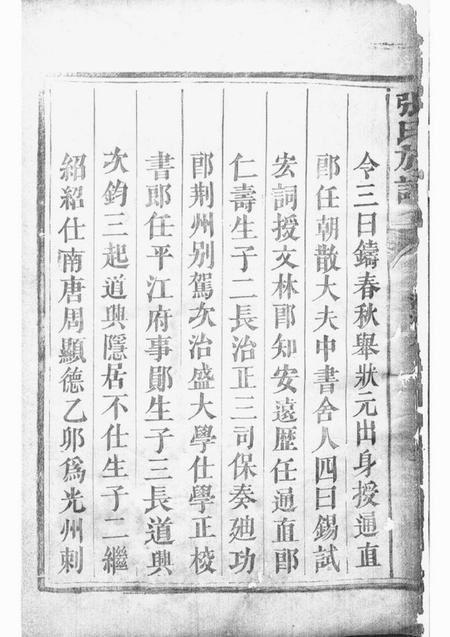 張氏族譜
令三曰鑄春秋舉狀元出身授通直
郎任朝散大夫中書舍人四曰錫試
宏詞授文林郎知安遠歷任通直郎
仁壽生子二長治正三司保奏廸功
郎荆州别駕次治盛大學仕學正校
書郎任平江府事鄖生子三長道興
次鈞三起道興隱居不仕生子二繼
紹紹仕南唐周顯德乙卯爲光州刺